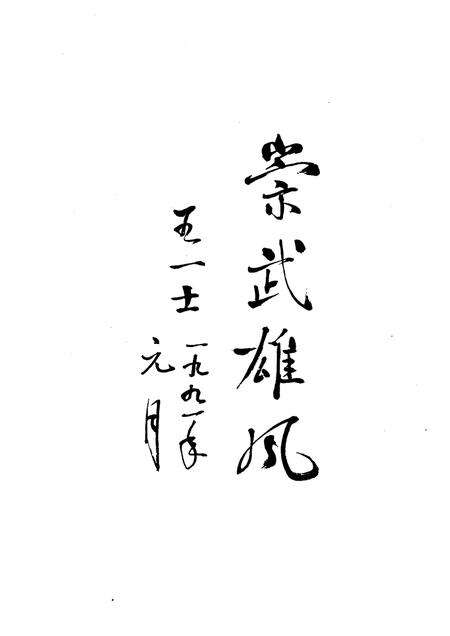 崇武雄风
王一士 一九九一年
元月